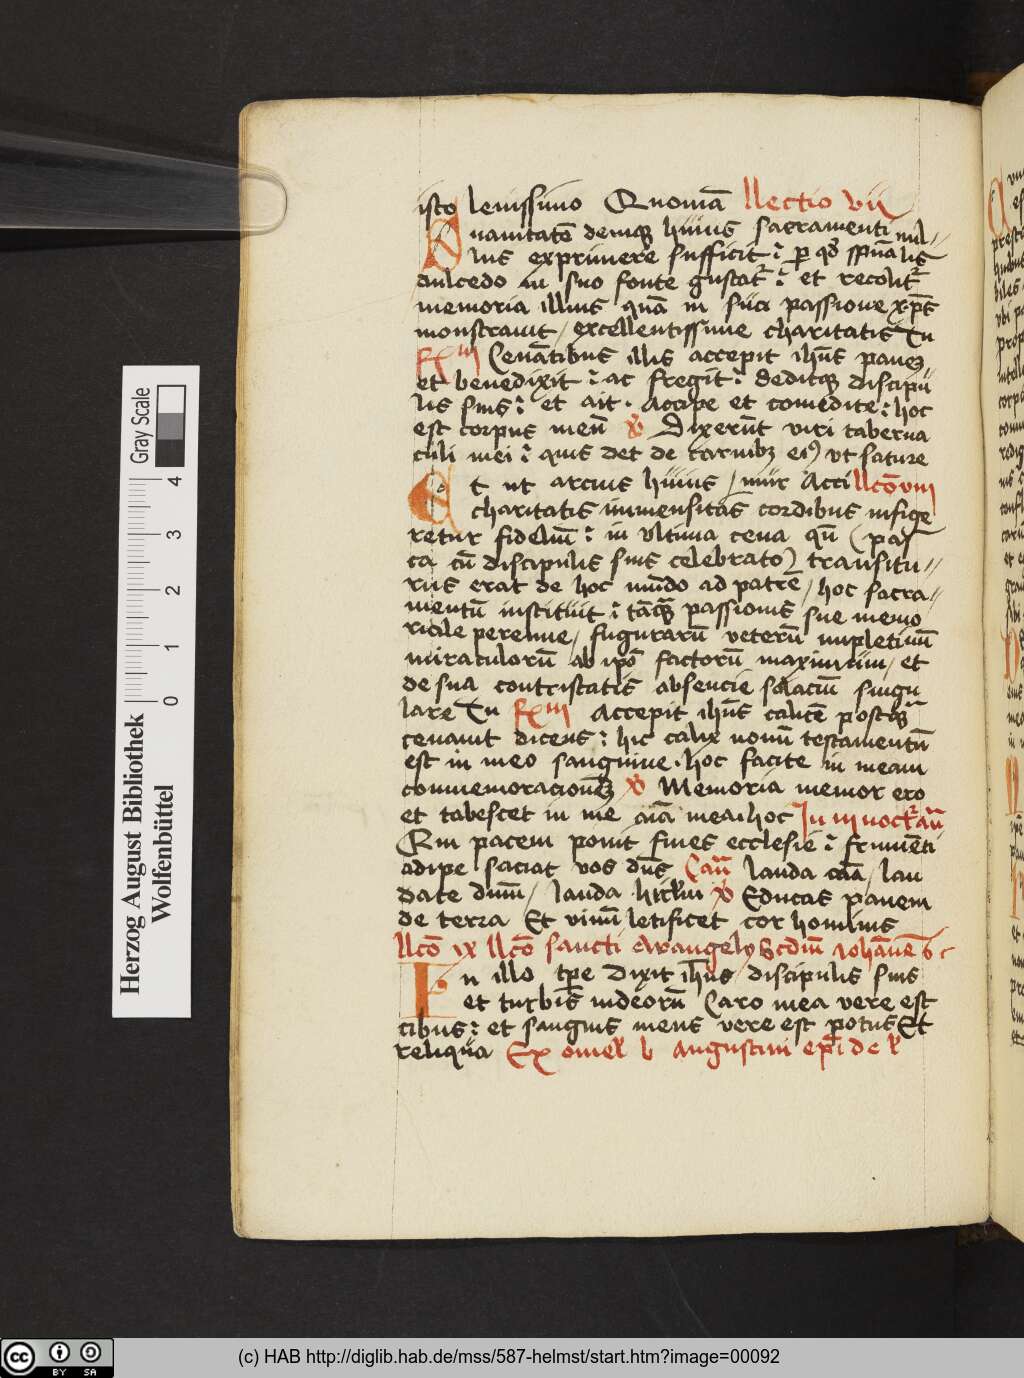 isto lenissimo Quoniā llectio vii
Suauitatē deniqꝫ huius sacramenti nul//
lus exprimere sufficit : ꝑ qđ spūalis
dulcedo in suo fonte gustat̄ : et recolit̄
memoria illius quā in sua passione xp̄s
monstrauit / excellentissime charitatis Tu
Cenātibus illis accepit ihūs panem
et benedixit : ac fregit : deditqꝫ discipu
lis suis : et ait . Accipe et comedite : hoc
est corpus meū Dixerūt viri taberna
culi mei : quis det de carnibꝫ eiꝯ vt sature
Et ut arcius huius / mur Acci llcō viii
charitatis immensitas cordibus infige
retur fideliū : in vltima cena qn̄ (pas
ca cū discipulis suis celebrato) transitu//
rus erat de hoc mūdo ad patrē / hoc sacra//
mentū instituit : tāqꝫ passionis sue memo
riale perenne / figurarū veterū impletiuū
miraculorū ab ipō factorū maximum / et
de sua contristatis absencie solacium singu
lare Tu Accepit ihūs calicē postqꝫ
cenauit dicens : hic calix nouū testamentū
est in meo sanguine . hoc facite in meam
commemoracionē Memoria memor ero
et tabescet in me aīa mea . hoc In iii nocť̄ aū
Qui pacem ponit fines ecclesie : frumēti
adipe saciat vos dn̄s Caū lauda caā / lau
date dnm̄ / lauda hirl̄m Educas panem
de terra Et vinū letificet cor hominis
llcō ix llcō sancti ewangelij Scdūm iohānē
In illo tꝑe dixit ihūs discipulis suis
et turbis iudeorū Caro mea vere est
cibus : et sanguis meus vere est potus Et
reliqua Ex omel̄ b augustini epī de l̄
Herzog August Bibliothek
Wolfenbüttel
Gray Scale
0 1 2 3 4
cc BY SA
(c) HAB http://diglib.hab.de/mss/587-helmst/start.htm?image=00092